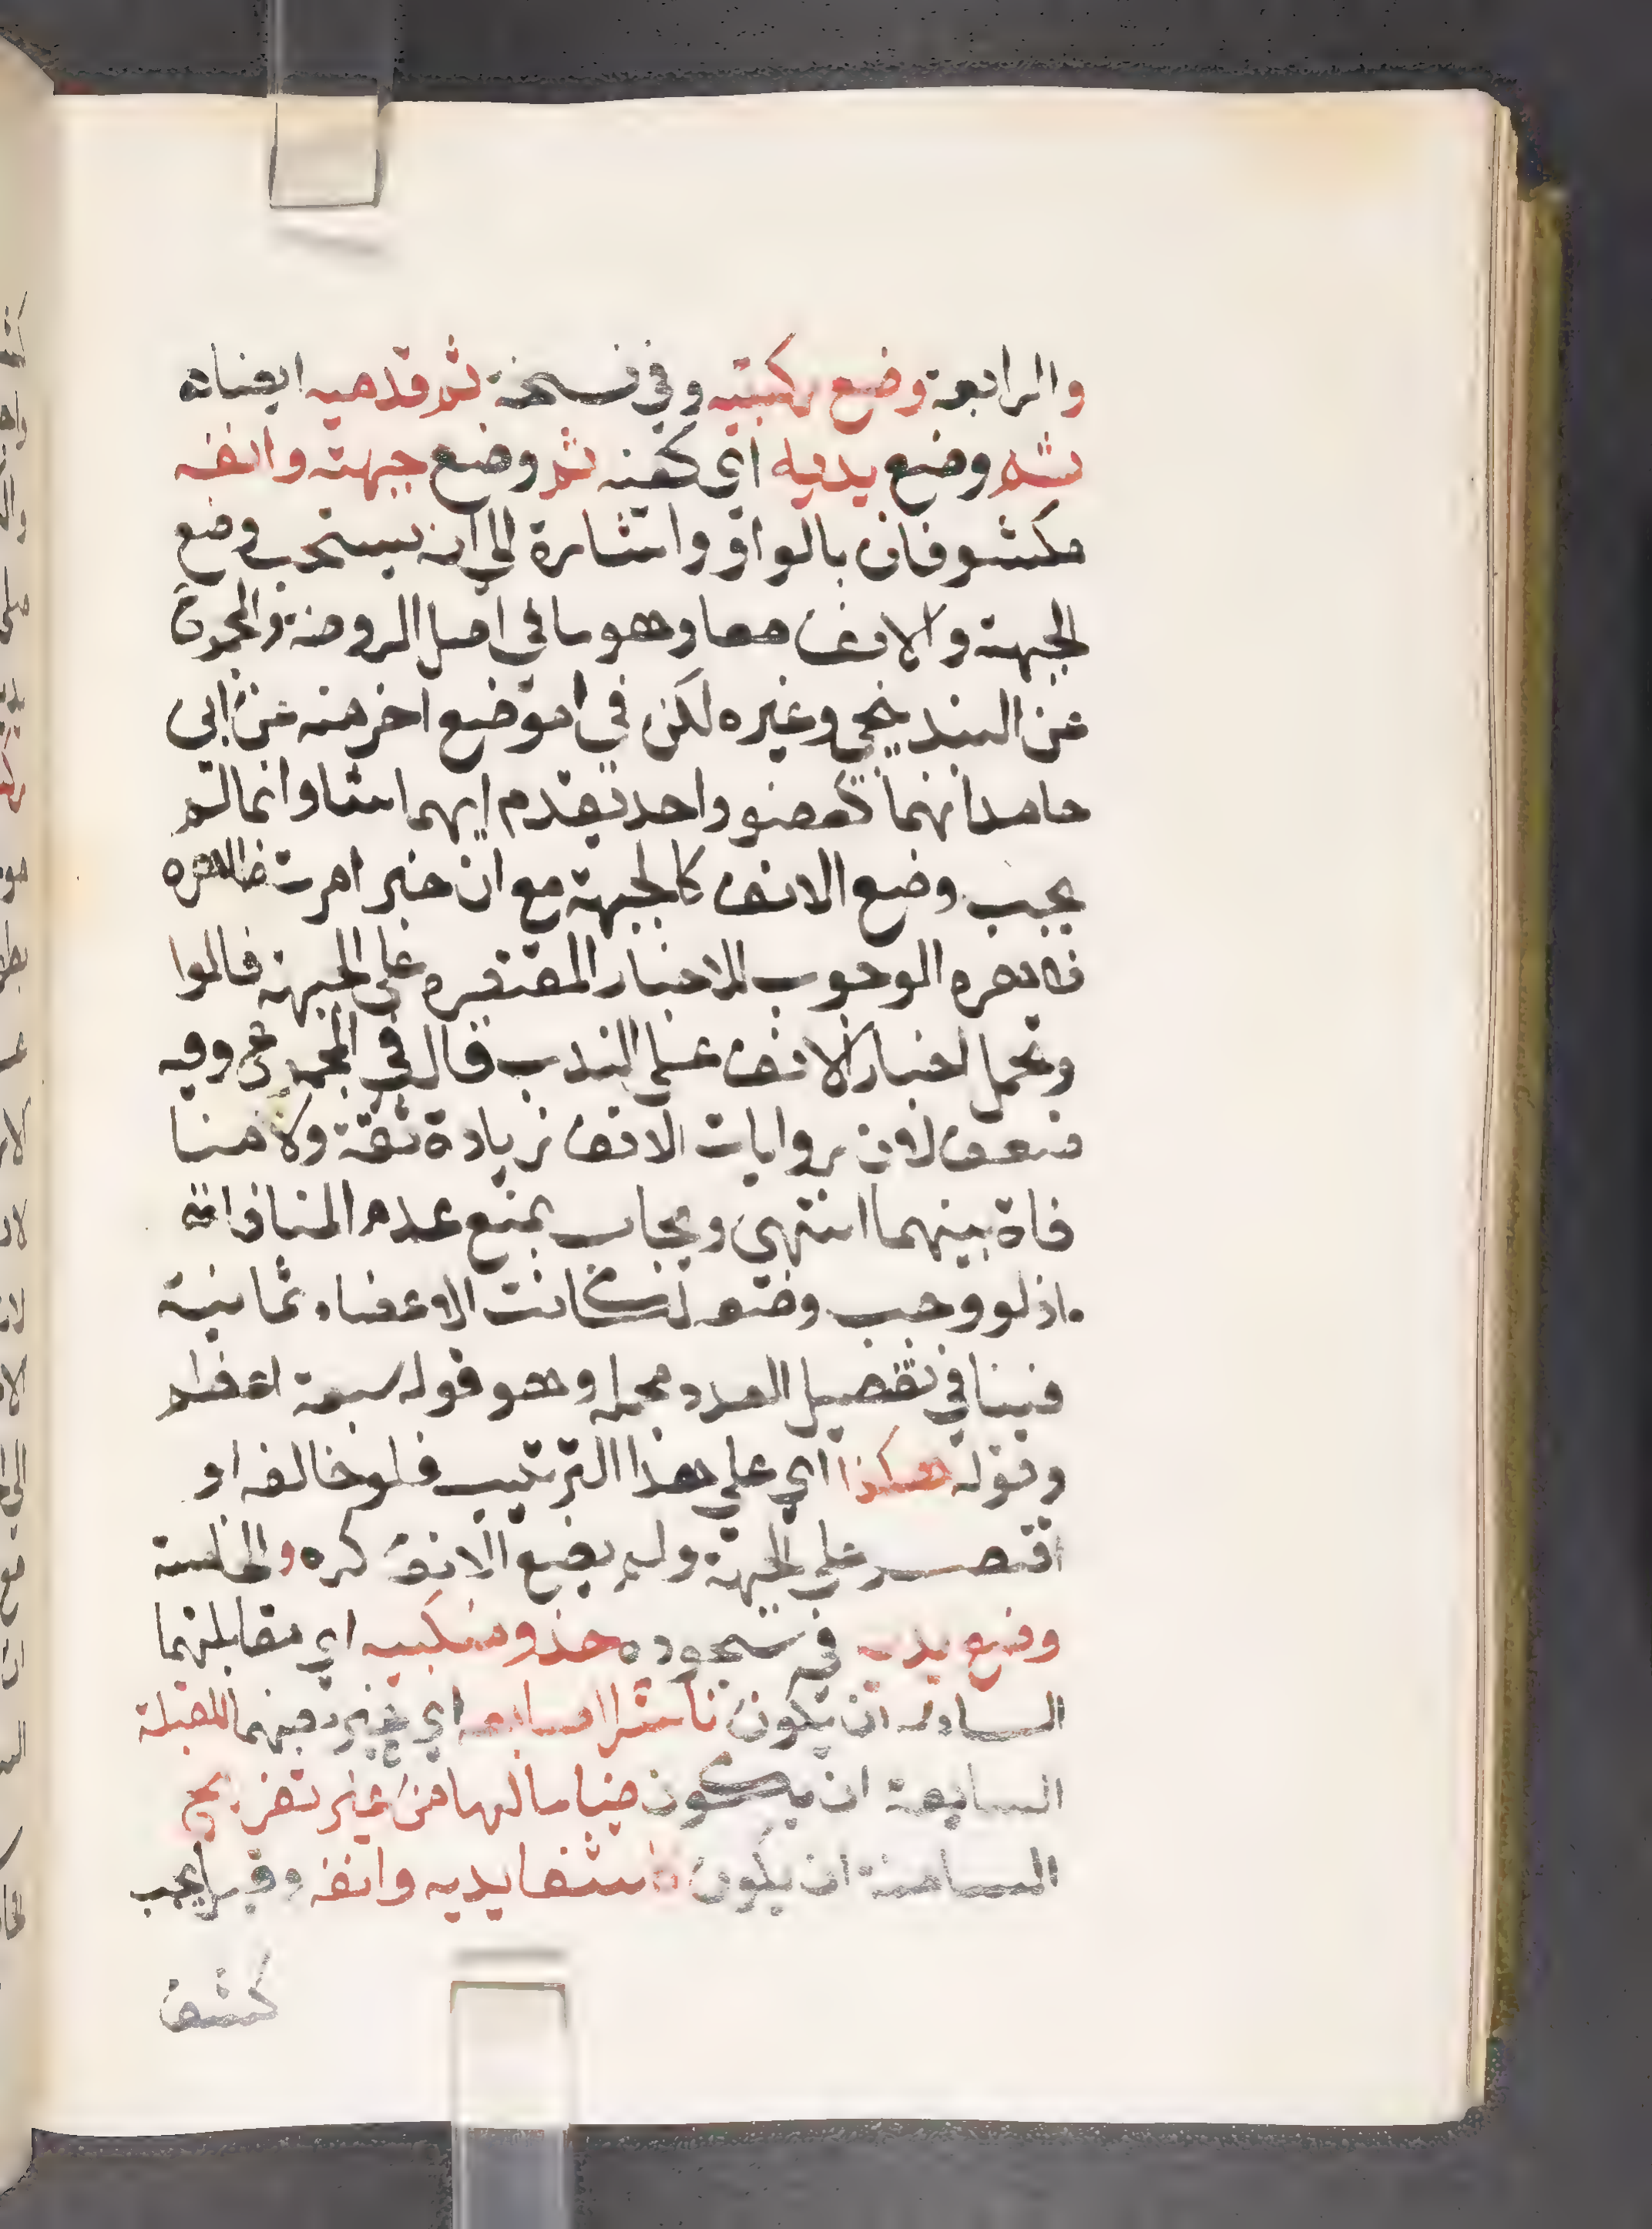 والرابعة وضع ركبتيه وفي نسخة ثم قدميه ايضا
ثم وضع يديه اي كفيه ثم وضع جبهته وانفه
مكشوفان بالواو واشارة الي انه يستحب وضع
الجبهة والانف معا وهو ما في اصل الروضة والمجموع
عن البندنيجي وغيره لكن في موضع اخر منه عن ابي
حامد انهما كعضو واحد يقدم ايهما شا وانما لم
يجب وضع الانف كالجبهة مع ان خبر امرت ظاهره
ظاهره الوجوب للاخبار المقتصره على الجبهة قالوا
وتحمل اخبار الانف على الندب قال في المجموع وفيه
ضعف لان روايات الانف زيادة ثقة ولا منا
فاة بينهما انتهي ويجاب بمنع عدم المنافاة
اذ لو وجب وضعه لكانت الاعضاء ثمانية
فينافي تفصيل العدد مجمله وهو قوله سبعة اعظم
وقوله هكذا اي علي هذا الترتيب فلو خالفه او
اقتصر علي الجبهة ولم يضع الانف كره والخامسة
وضع يديه في سجوده حذو منكبيه اي مقابلتهما
السادسه ان يكون ناشرا اصابعه اي غير للقبلة
السابعة ان يكون ضاما لها من غير تفريج
الثامنة ان يكون كاشفا يديه وانفه وقيل يجب
كشف